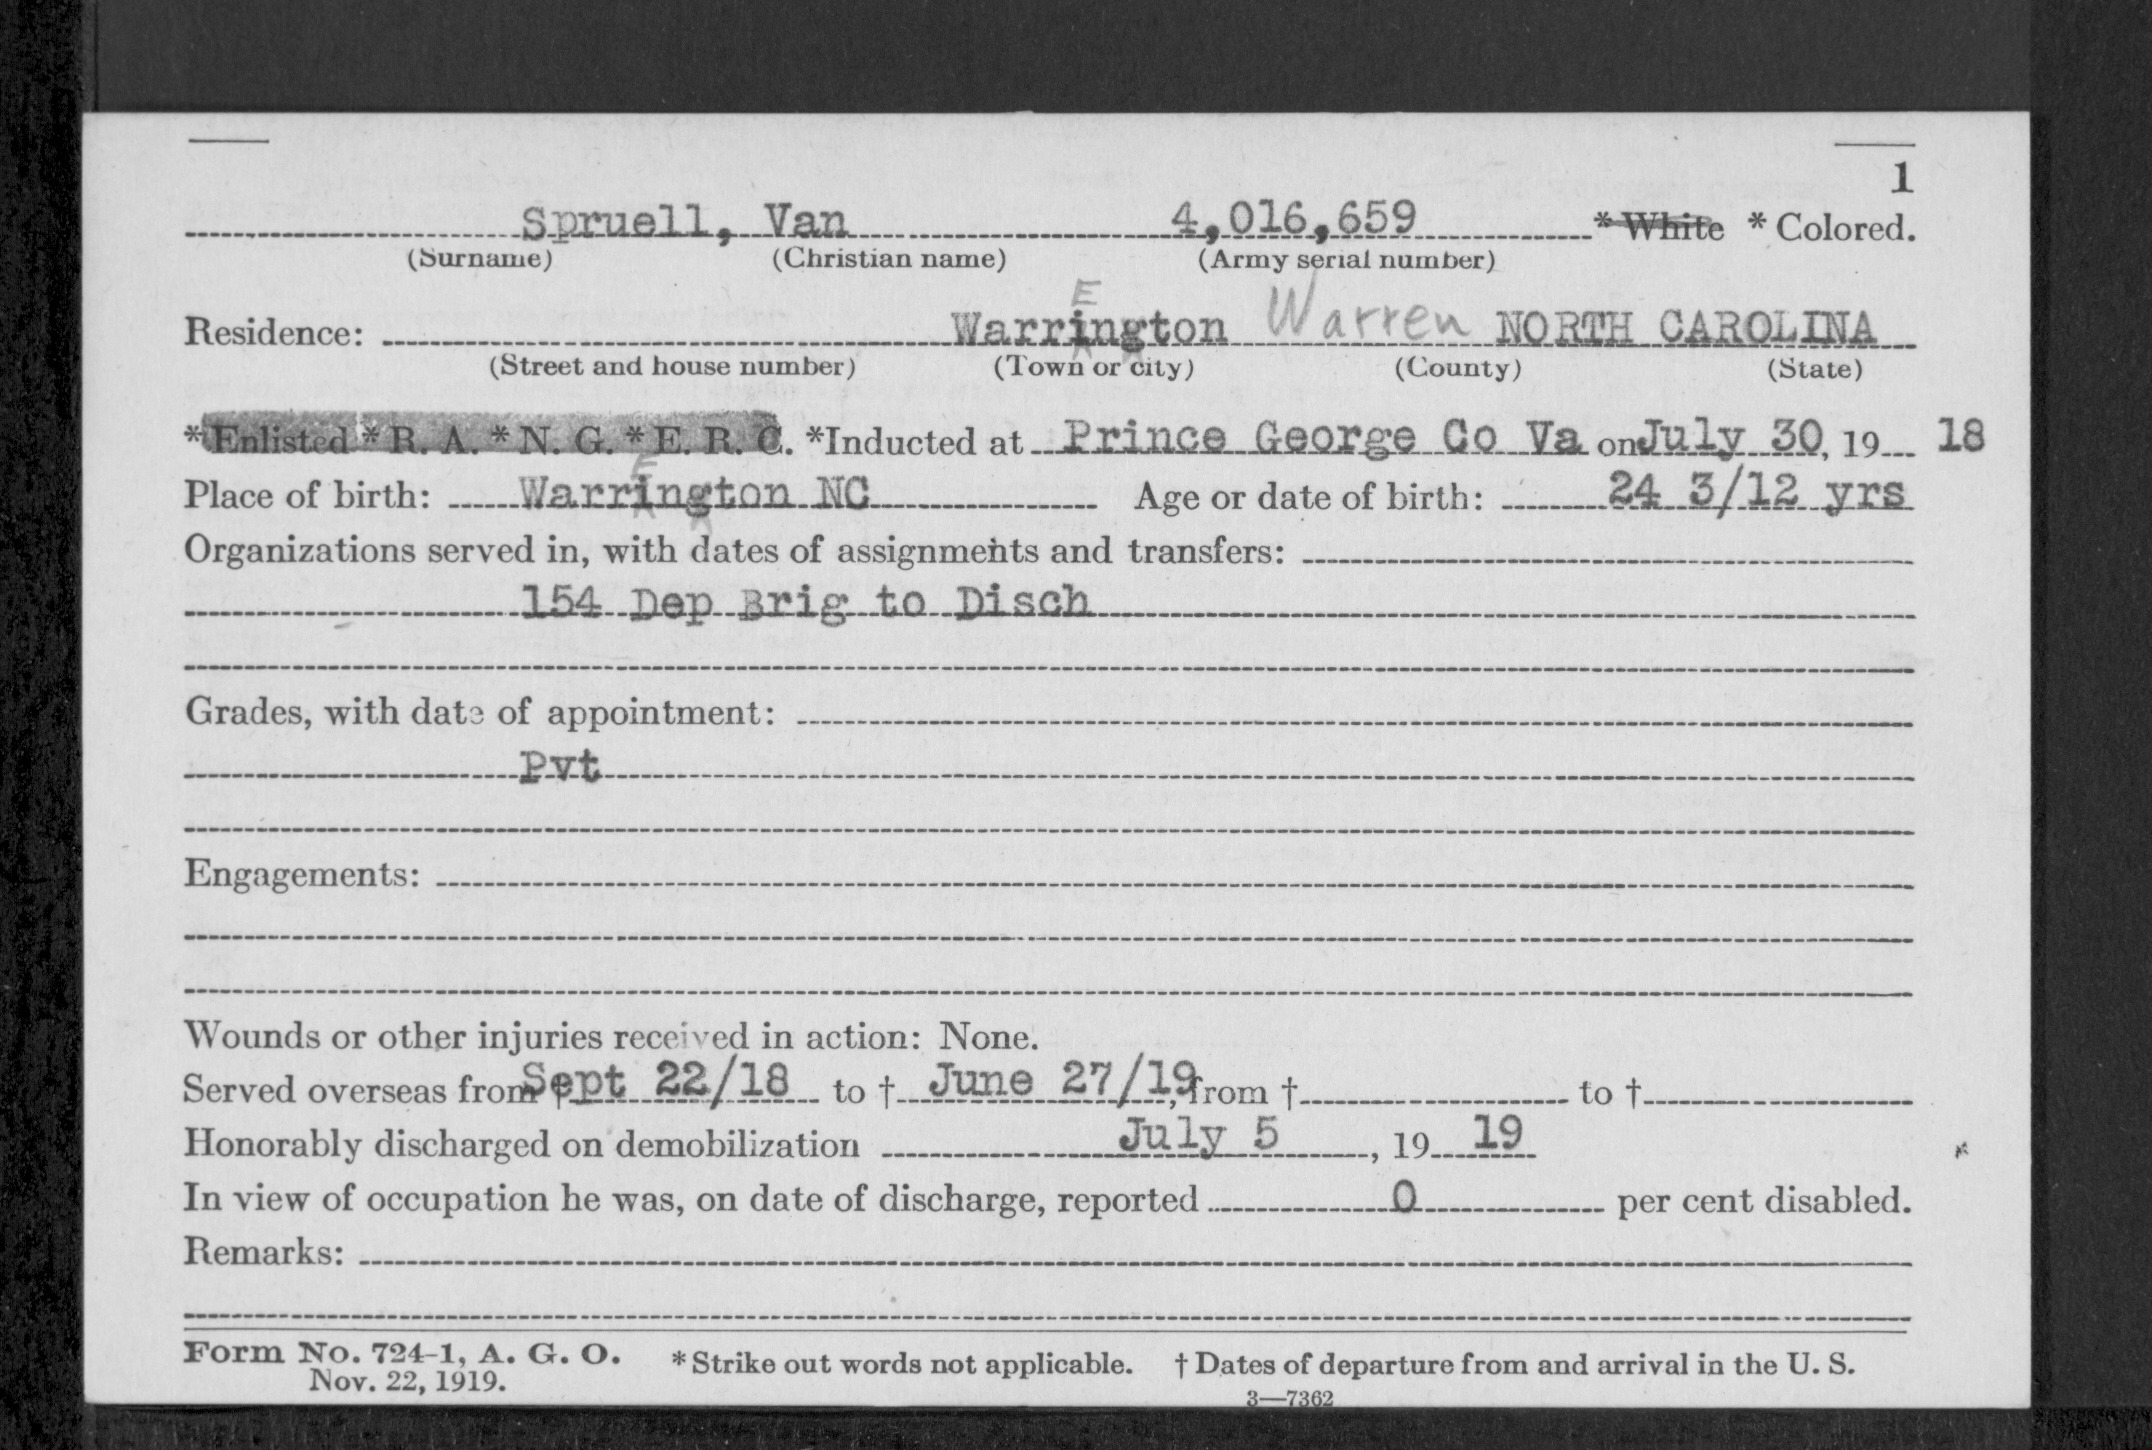 1
Spruell, Van 4,016,659 * White * Colored.
(Surname) (Christian name) (Army serial number)
E
Residence: Warrington Warren NORTH CAROLINA
(Street and house number) (Town or city) (County) (State)
*Enlisted *R. A. *N. G. *E. R. C. *Inducted at Prince George Co Va on July 30, 19 18
E
Place of birth: Warrington NC Age or date of birth: 24 3/12 yrs
Organizations served in, with dates of assignments and transfers:
154 Dep Brig to Disch
Grades, with date of appointment:
Pvt
Engagements:
Wounds or other injuries received in action: None.
Served overseas from † Sept 22/18 to † June 27/19, from † to †
Honorably discharged on demobilization July 5, 19 19
In view of occupation he was, on date of discharge, reported 0 per cent disabled.
Remarks:
Form No. 724-1, A. G. O. *Strike out words not applicable. † Dates of departure from and arrival in the U. S.
Nov. 22, 1919.
3—7362